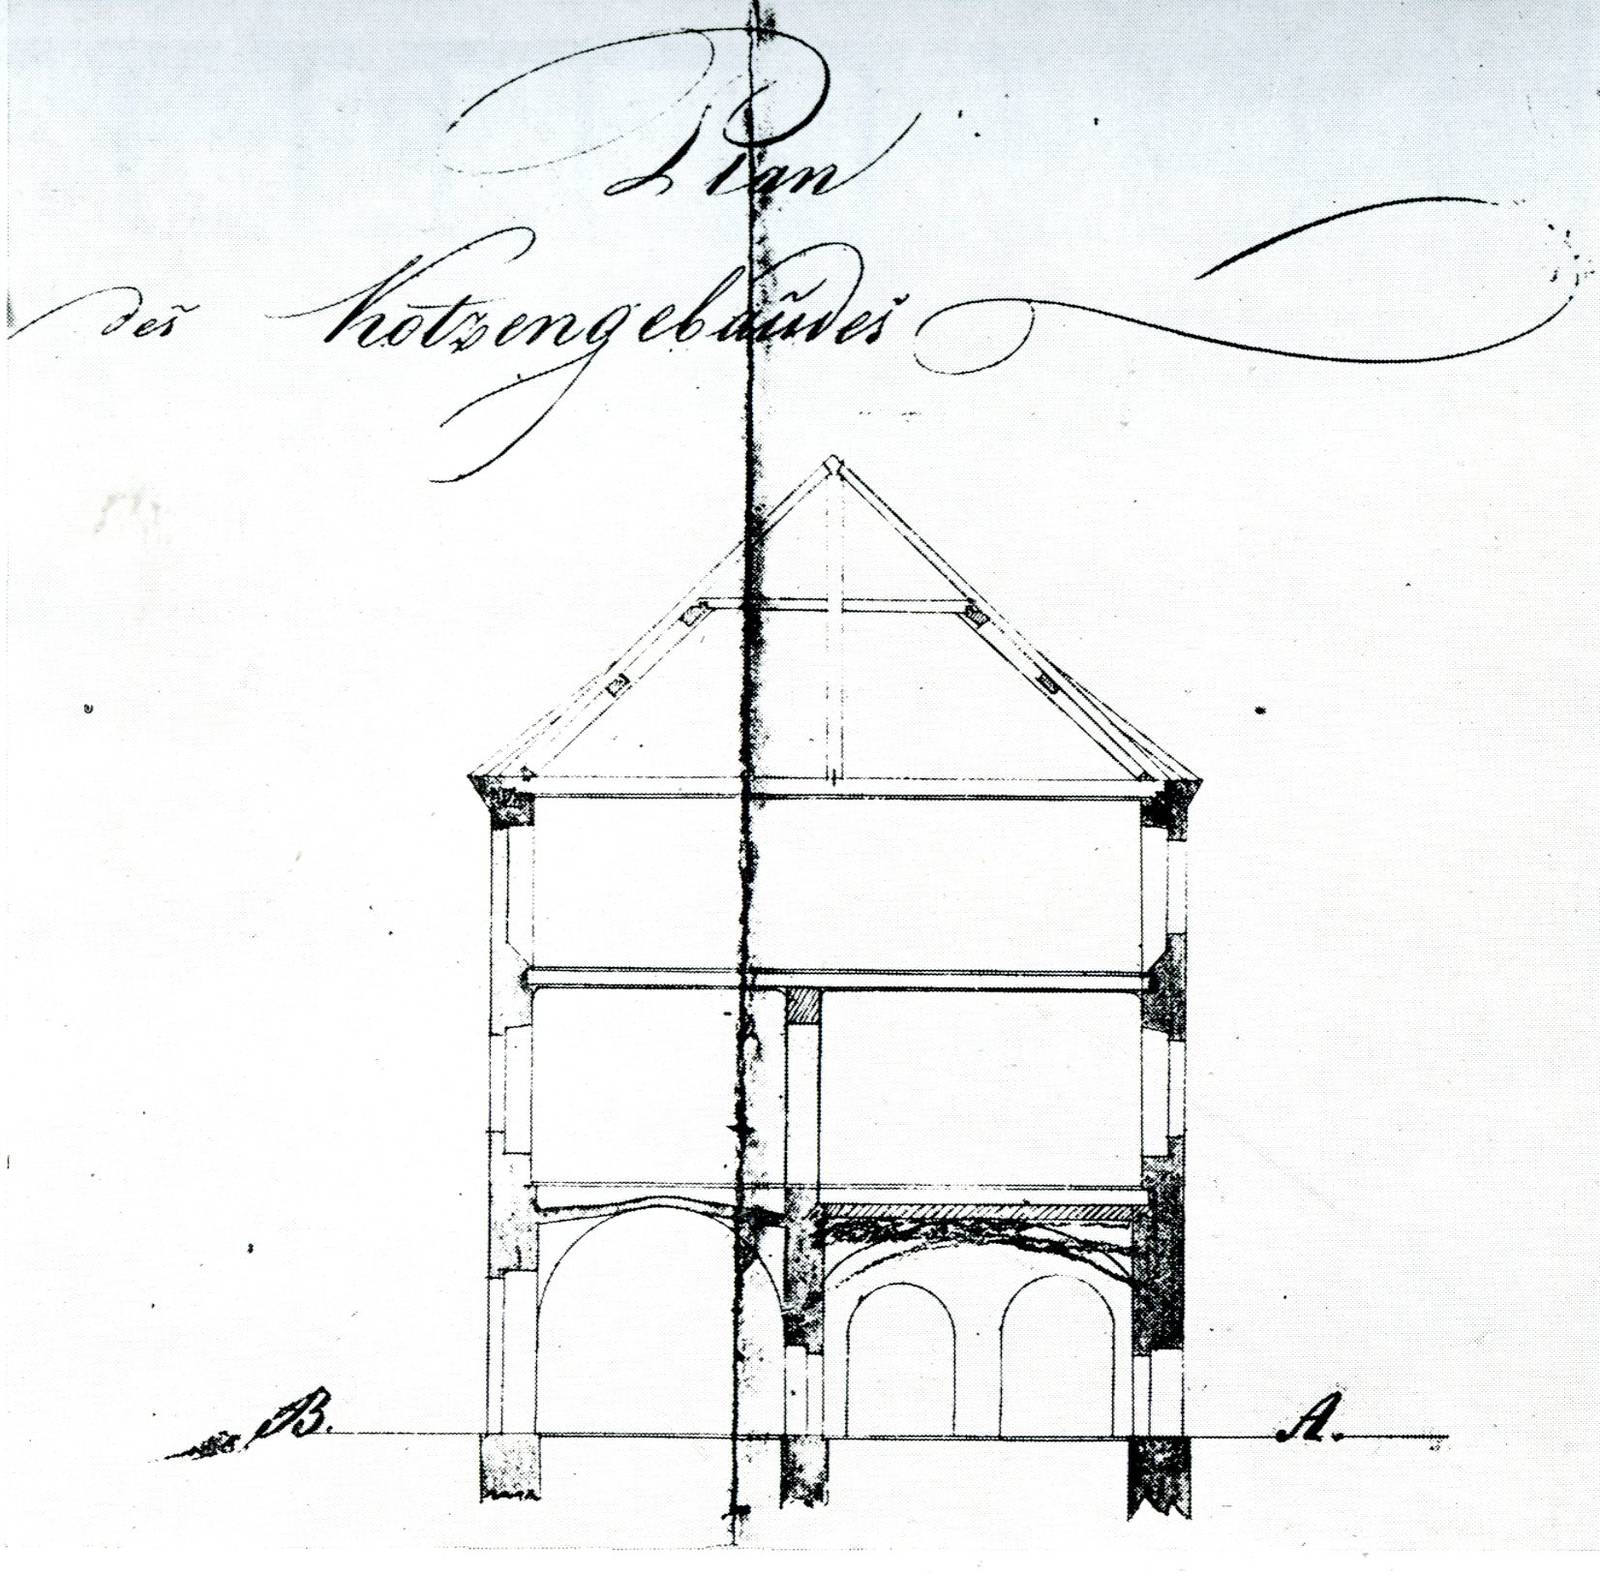 Plan
des Kotzengebaudes
B.
A.